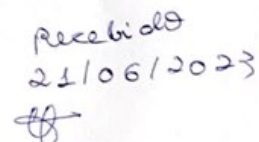 Recebido
21/06/2023